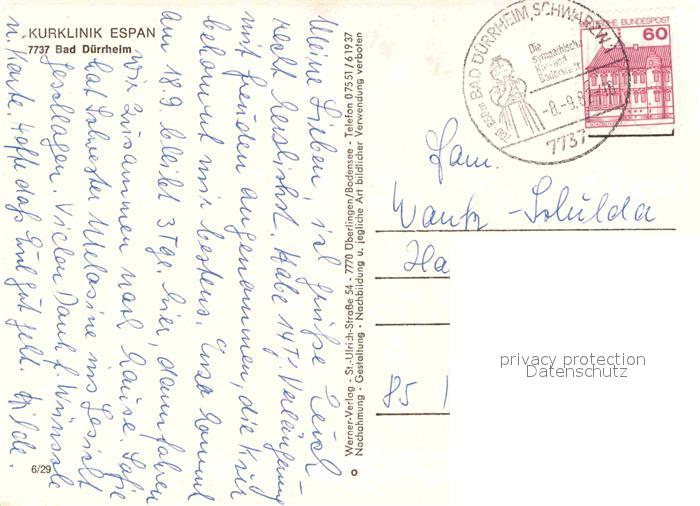 KURKLINIK ESPAN
7737 Bad Dürrheim
Meine Lieben, ich grüße Euch
recht herzlichst. Habe 14 T. Verlängerung
mit Freuden angenommen, die Kur
bekommt mir bestens. Inza kommt
am 18.9. bleibt 3 Tge. hier, dann fahren
wir zusammen nach Hause.
hat Schwester Melasine ins Gesicht
geschlagen. Vielen Dank f. Wünsche
u. Karte. Hoffe daß Euch gut geht. Hilde.
6/29
Werner-Verlag - St.-Ulrich-Straße 54 - 7770 Überlingen/Bodensee - Telefon 07551/61937
Nachahmung · Gestaltung · Nachbildung u. jegliche Art bildlicher Verwendung verboten
BAD DÜRRHEIM, SCHWARZW. 1
Die
sympathische
und
-8.-9.8
7737
700 m
DEUTSCHE BUNDESPOST
60
Fam.
Wantz-Schulda
Ha
85
privacy protection
Datenschutz